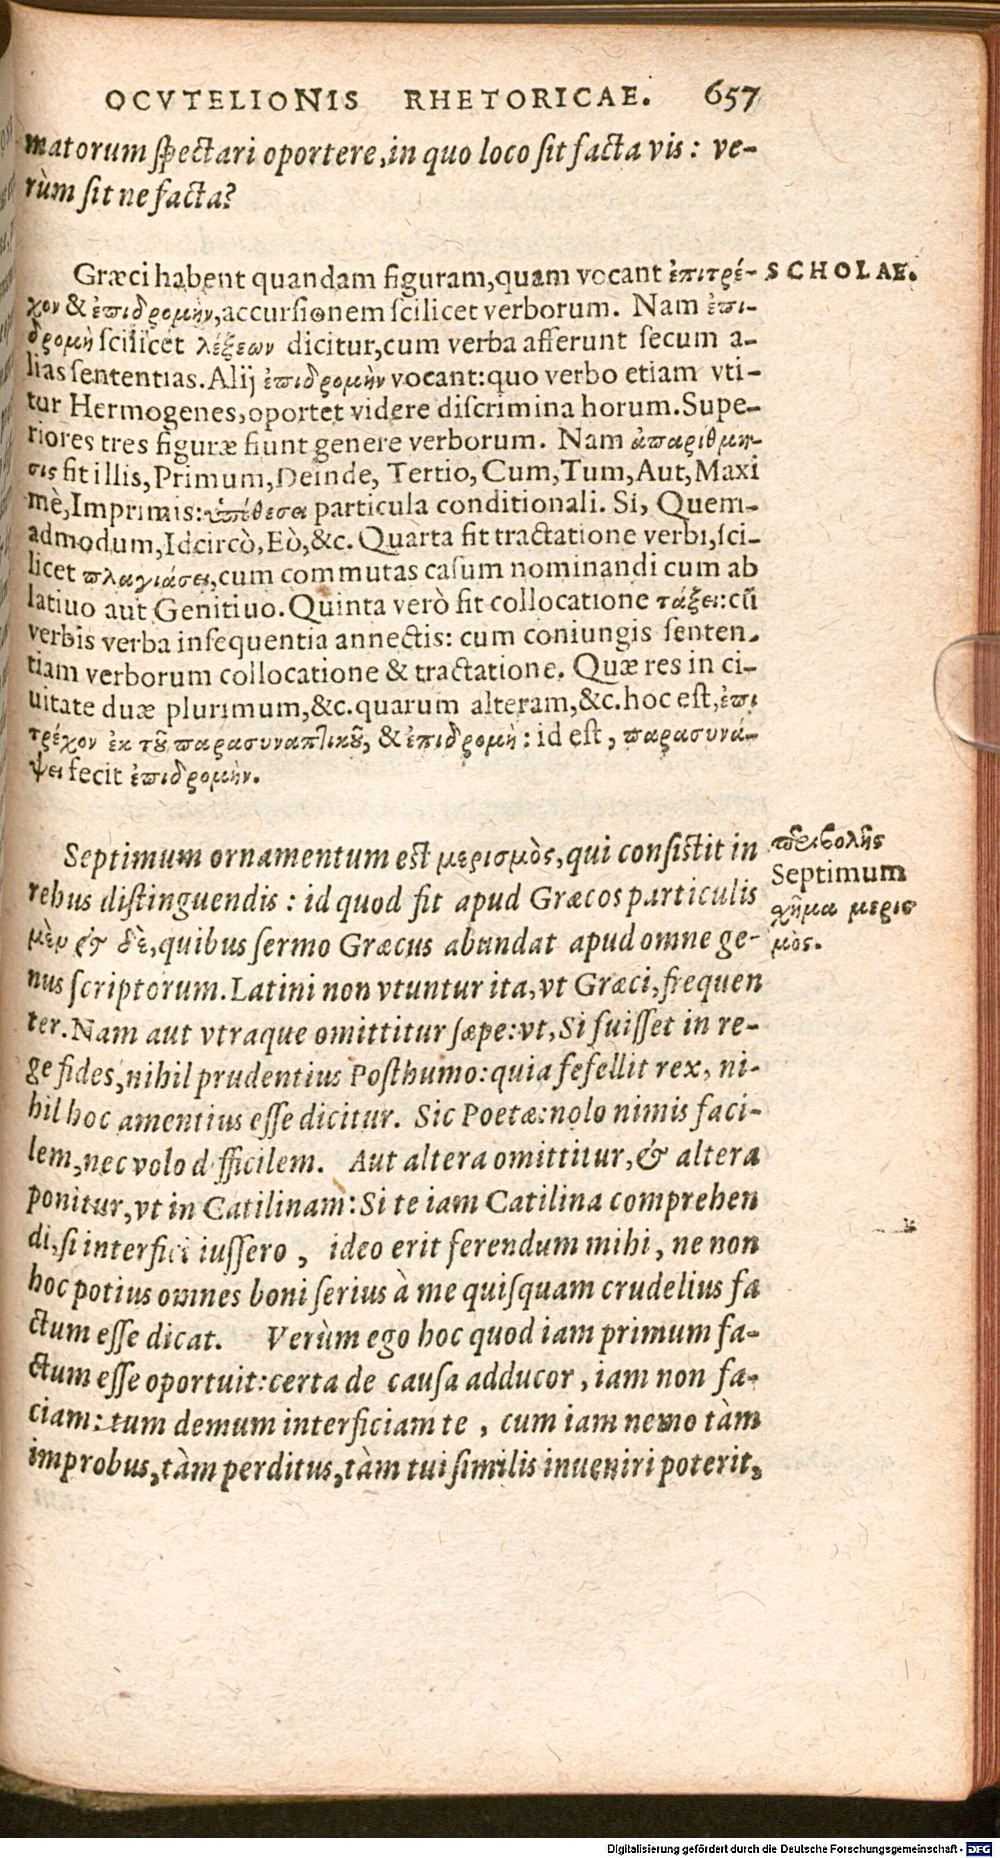 OCVTELIONIS RHETORICAE. 657
matorum spectari oportere, in quo loco sit facta vis: ve-
rùm sit ne facta?
Græci habent quandam figuram, quam vocant ἐπιτρέ-
SCHOLAE.
χον & ἐπιδρομὴν, accursionem scilicet verborum. Nam ἐπι-
δρομὴ scilicet λέξεων dicitur, cum verba afferunt secum a-
lias sententias. Alij ἐπιδρομὴν vocant: quo verbo etiam vti-
tur Hermogenes, oportet videre discrimina horum. Supe-
riores tres figuræ fiunt genere verborum. Nam ἀπαρίθμη-
σις fit illis, Primum, Deinde, Tertio, Cum, Tum, Aut, Maxi
mè, Imprimis: ὑπόθεσα particula conditionali. Si, Quem-
admodum, Idcircò, Eò, &c. Quarta fit tractatione verbi, sci-
licet πλαγιάσει, cum commutas casum nominandi cum ab
latiuo aut Genitiuo. Quinta verò fit collocatione τάξει: cū
verbis verba insequentia annectis: cum coniungis senten-
tiam verborum collocatione & tractatione. Quæ res in ci-
uitate duæ plurimum, &c. quarum alteram, &c. hoc est, ἐπι
τρέχον ἐκ τοῦ παρασυναπτικοῦ, & ἐπιδρομὴ: id est, παρασυνά-
ψει fecit ἐπιδρομὴν.
Septimum ornamentum est μερισμὸς, qui consistit in
rebus distinguendis: id quod fit apud Græcos particulis
μὲν & δὲ, quibus sermo Græcus abundat apud omne ge-
nus scriptorum. Latini non vtuntur ita, vt Græci, frequen
περιβολῆς
Septimum
χῆμα μερισ
μὸς.
ter. Nam aut vtraque omittitur sæpe: vt, Si fuisset in re-
ge fides, nihil prudentius Posthumo: quia fefellit rex, ni-
hil hoc amentius esse dicitur. Sic Poetæ: nolo nimis faci-
lem, nec volo difficilem. Aut altera omittitur, & altera
ponitur, vt in Catilinam: Si te iam Catilina comprehen
di, si interfici iussero, ideo erit ferendum mihi, ne non
hoc potius omnes boni serius à me quisquam crudelius fa
ctum esse dicat. Verùm ego hoc quod iam primum fa-
ctum esse oportuit: certa de causa adducor, iam non fa-
ciam: tum demum interficiam te, cum iam nemo tàm
improbus, tàm perditus, tàm tui similis inueniri poterit,
Digitalisierung gefördert durch die Deutsche Forschungsgemeinschaft - DFG